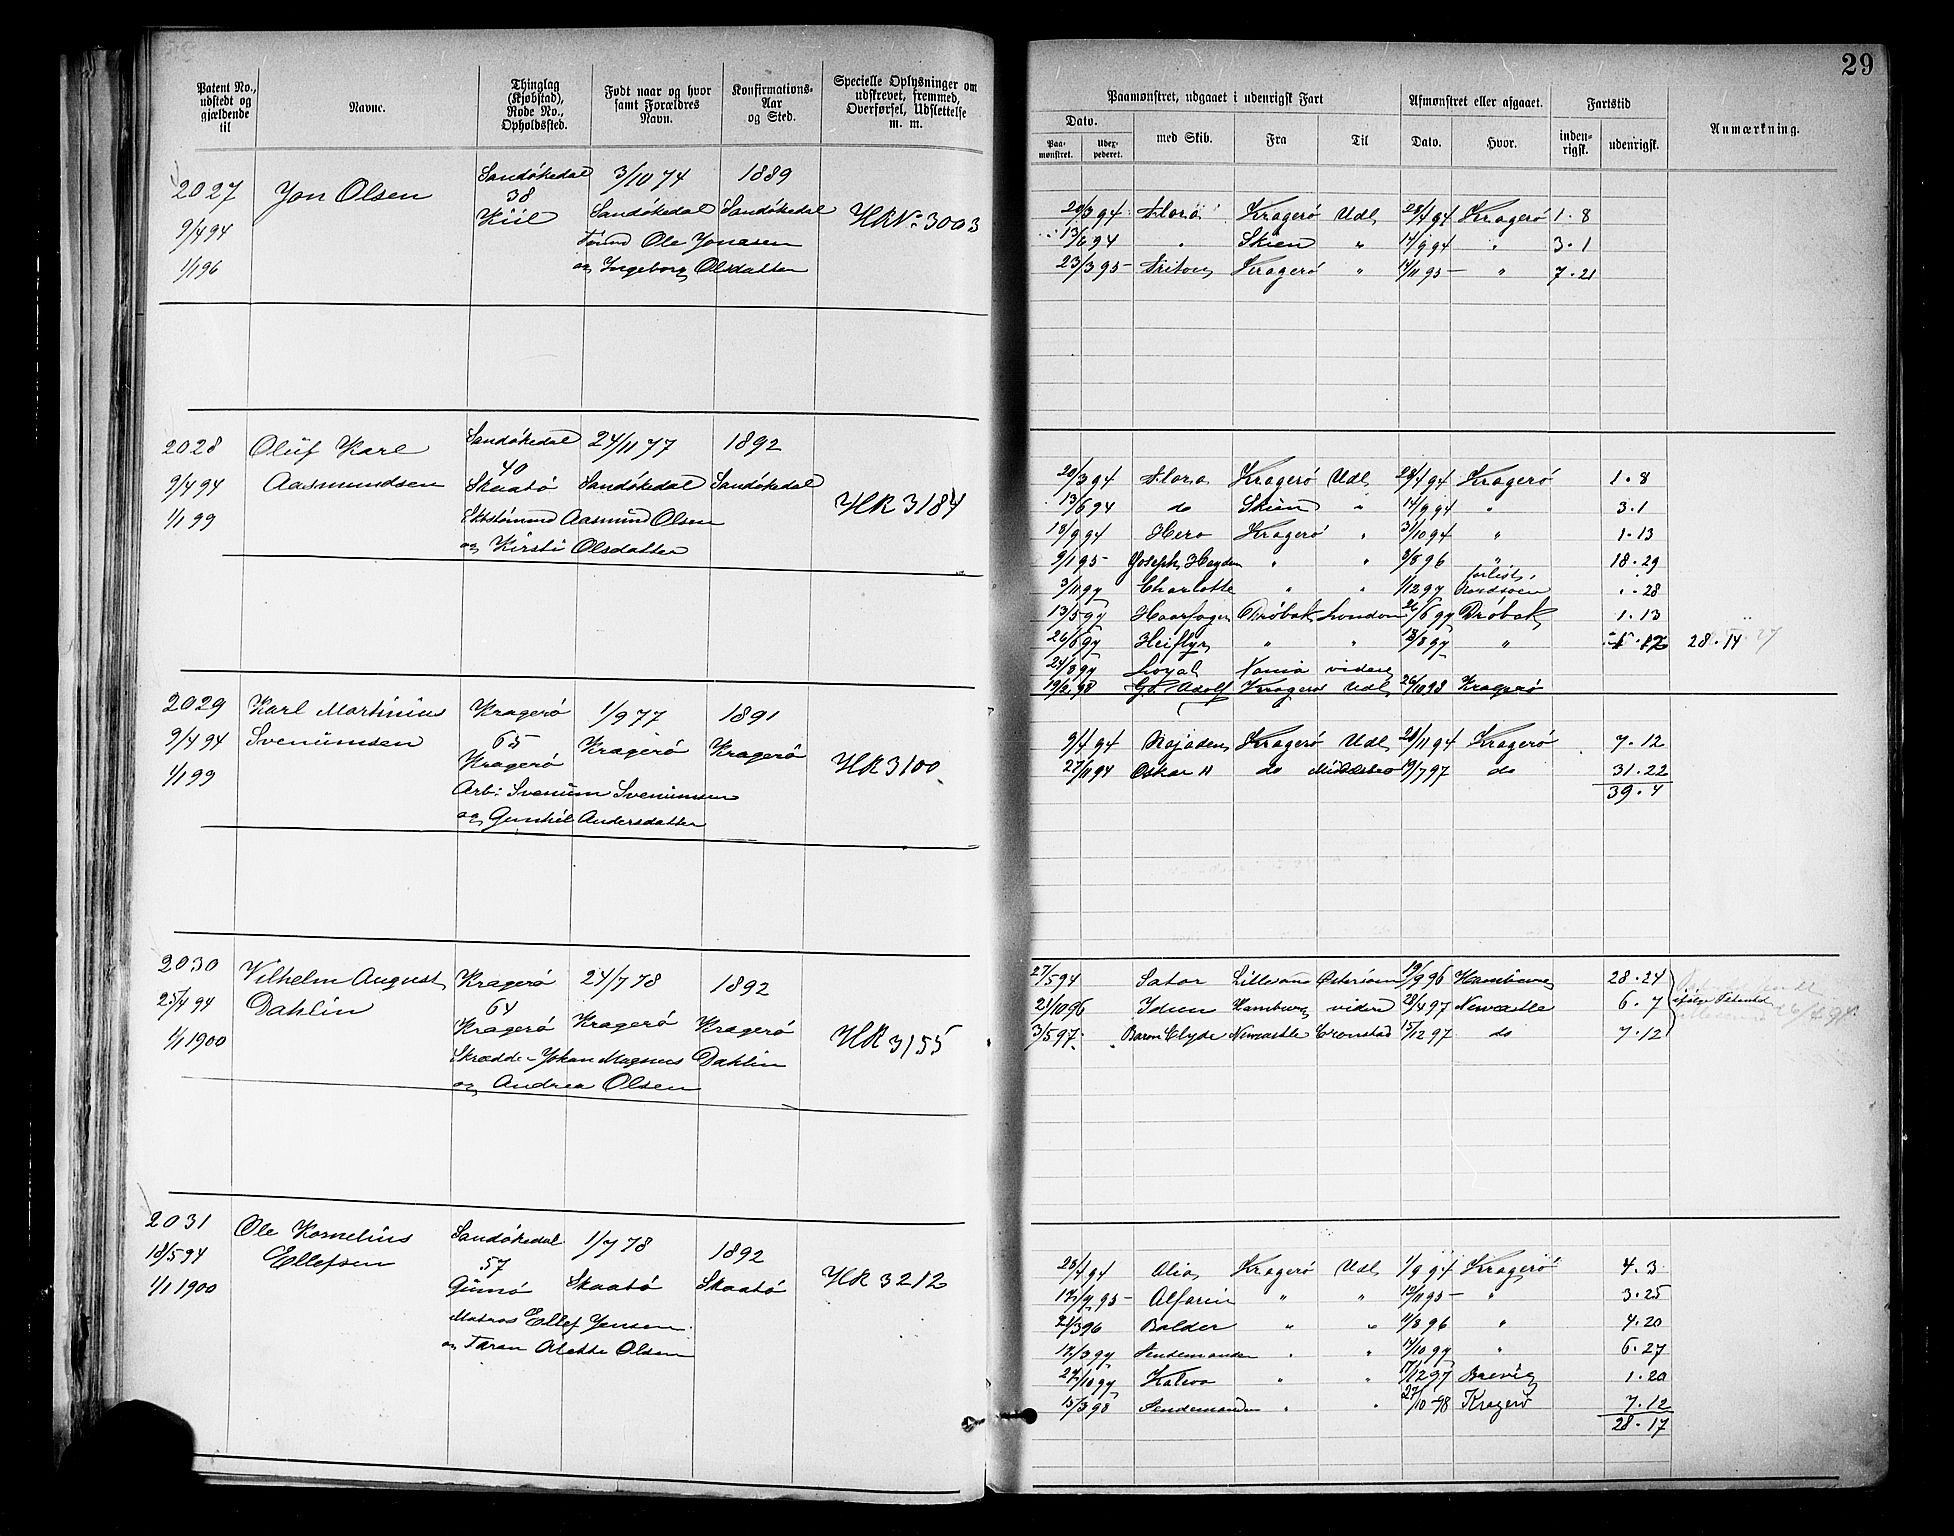 29
Patent No., udstedt og gjældende til
Navne.
Thinglag (Kjøbstad), Rode No., Opholdssted.
Født naar og hvor samt Forældres Navn.
Konfirmations-Aar og Sted.
Specielle Oplysninger om udskrevet, fremmed, Overførsel, Udslettelse m. m.
Paamønstret, udgaaet i udenrigsk Fart
Afmønstret eller afgaaet.
Fartstid
Anmærkning.
Dato.
Paa-mønstret.
Udex-pederet.
med Skib.
Fra
Til
Dato.
Hvor.
inden-rigsk.
udenrigsk.
2027 Jon Olsen Sandøkedal 3/10 74 1889
38
9/4 94 Kiil Sandøkedal Sandøkedal HR No 3003
Ole Jonasen
1/1 96 og Ingeborg Olsdatter
20/3 94 Flora Kragerø Udl 28/4 94 Kragerø 1·8
13/6 94 " Skien " 14/9 94 " 3·1
23/3 95 Triton Kragerø " 14/11 95 " 7·21
2028 Oluf Karl Sandøkedal 24/11 77 1892
40
9/4 94 Aasmundsen Skaatø Sandøkedal Sandøkedal HR 3184
1/1 99 Aasmund Olsen
og Kirsti Olsdatter
20/3 94 Flora Kragerø Udl 28/4 94 Kragerø 1·8
13/6 94 do Skien " 14/9 94 " 3·1
18/9 94 Hero Kragerø " 31/10 94 " 1·13
9/1 95 Joseph Haydn " " 8/8 96 " 18·29
forlist,
3/11 97 Charlotte " " 1/12 97 Nordsøen "·28
13/5 97 Haarfager Drøbak London 26/6 97 Drøbak 1·13
26/6 97 " " 18/8 97 " 28·14
24/8 97 Loyal videre
19/2 98 G. Adolf Kragerø Udl 26/10 98 Kragerø
2029 Karl Martinius Kragerø 1/9 77 1891
65
9/4 94 Svenumsen Kragerø Kragerø Kragerø HR 3100
1/1 99 Arb: Svenum Svenumsen
og Gunhil Andersdatter
9/4 94 Najaden Kragerø Udl 28/11 94 Kragerø 7·12
27/11 94 Oskar II do 19/7 97 do 31·22
39·4
2030 Vilhelm August Kragerø 24/7 78 1892
64
25/4 94 Dahlin Kragerø Kragerø Kragerø HR 3155
1/1 1900 Skrædder Johan Magnus Dahlin
og Andrea Olsen
27/5 94 Sator Lillesand Østersøen 19/9 96 Hamburg 28·24
21/10 96 Idun Hamburg videre 28/4 97 Newcastle 6·7
3/5 97 Baron Clyde Newcastle Cronstad 15/12 97 do 7·12
2031 Ole Kornelius Sandøkedal 1/7 78 1892
57
18/5 94 Ellefsen Gumø Skaatø Skaatø HR 3212
1/1 1900 Matros Ellef Jensen
og Taran Alette Olsen
28/4 94 Kragerø Udl 1/9 94 Kragerø 4·3
" " " 3·25
21/3 96 Balder " " 11/8 96 " 4·20
17/3 97 Sendemanden " " 14/10 97 " 6·27
27/10 97 " " 17/12 97 Brevig 1·20
15/3 98 Sendemanden " " 27/10 98 Kragerø 7·12
28·17